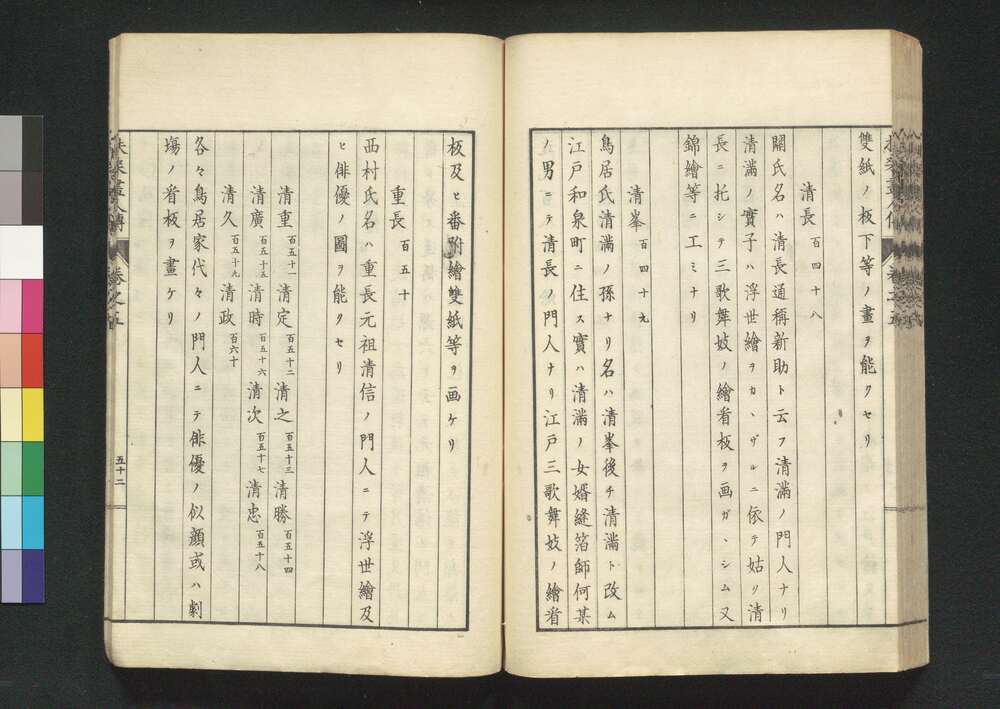 雙紙ノ板下等ノ畫ヲ能クセリ
清長 百四十八
關氏名ハ清長通稱新助ト云フ清滿ノ門人ナリ
清滿ノ實子ハ浮世繪ヲカヽザルニ依テ姑リ清
長ニ托シテ三歌舞妓ノ繪看板ヲ画ガヽシム又
錦繪等ニ工ミナリ
清峯 百四十九
鳥居氏清滿ノ孫ナリ名ハ清峯後チ清滿ト改ム
江戸和泉町ニ住ス實ハ清滿ノ女婿縫箔師何某
ノ男ニテ清長ノ門人ナリ江戸三歌舞妓ノ繪看
板及ヒ番附繪雙紙等ヲ画ケリ
重長 百五十
西村氏名ハ重長元祖清信ノ門人ニテ浮世繪及
ヒ俳優ノ圖ヲ能クセリ
清重 百五十一 清定 百五十二 清之 百五十三 清勝 百五十四
清廣 百五十五 清時 百五十六 清次 百五十七 清忠 百五十八
清久 百五十九 清政 百六十
各々鳥居家代々ノ門人ニテ俳優ノ似顔或ハ劇
塲ノ看板ヲ畫ケリ
扶桑畫人傳 卷之五
五十二